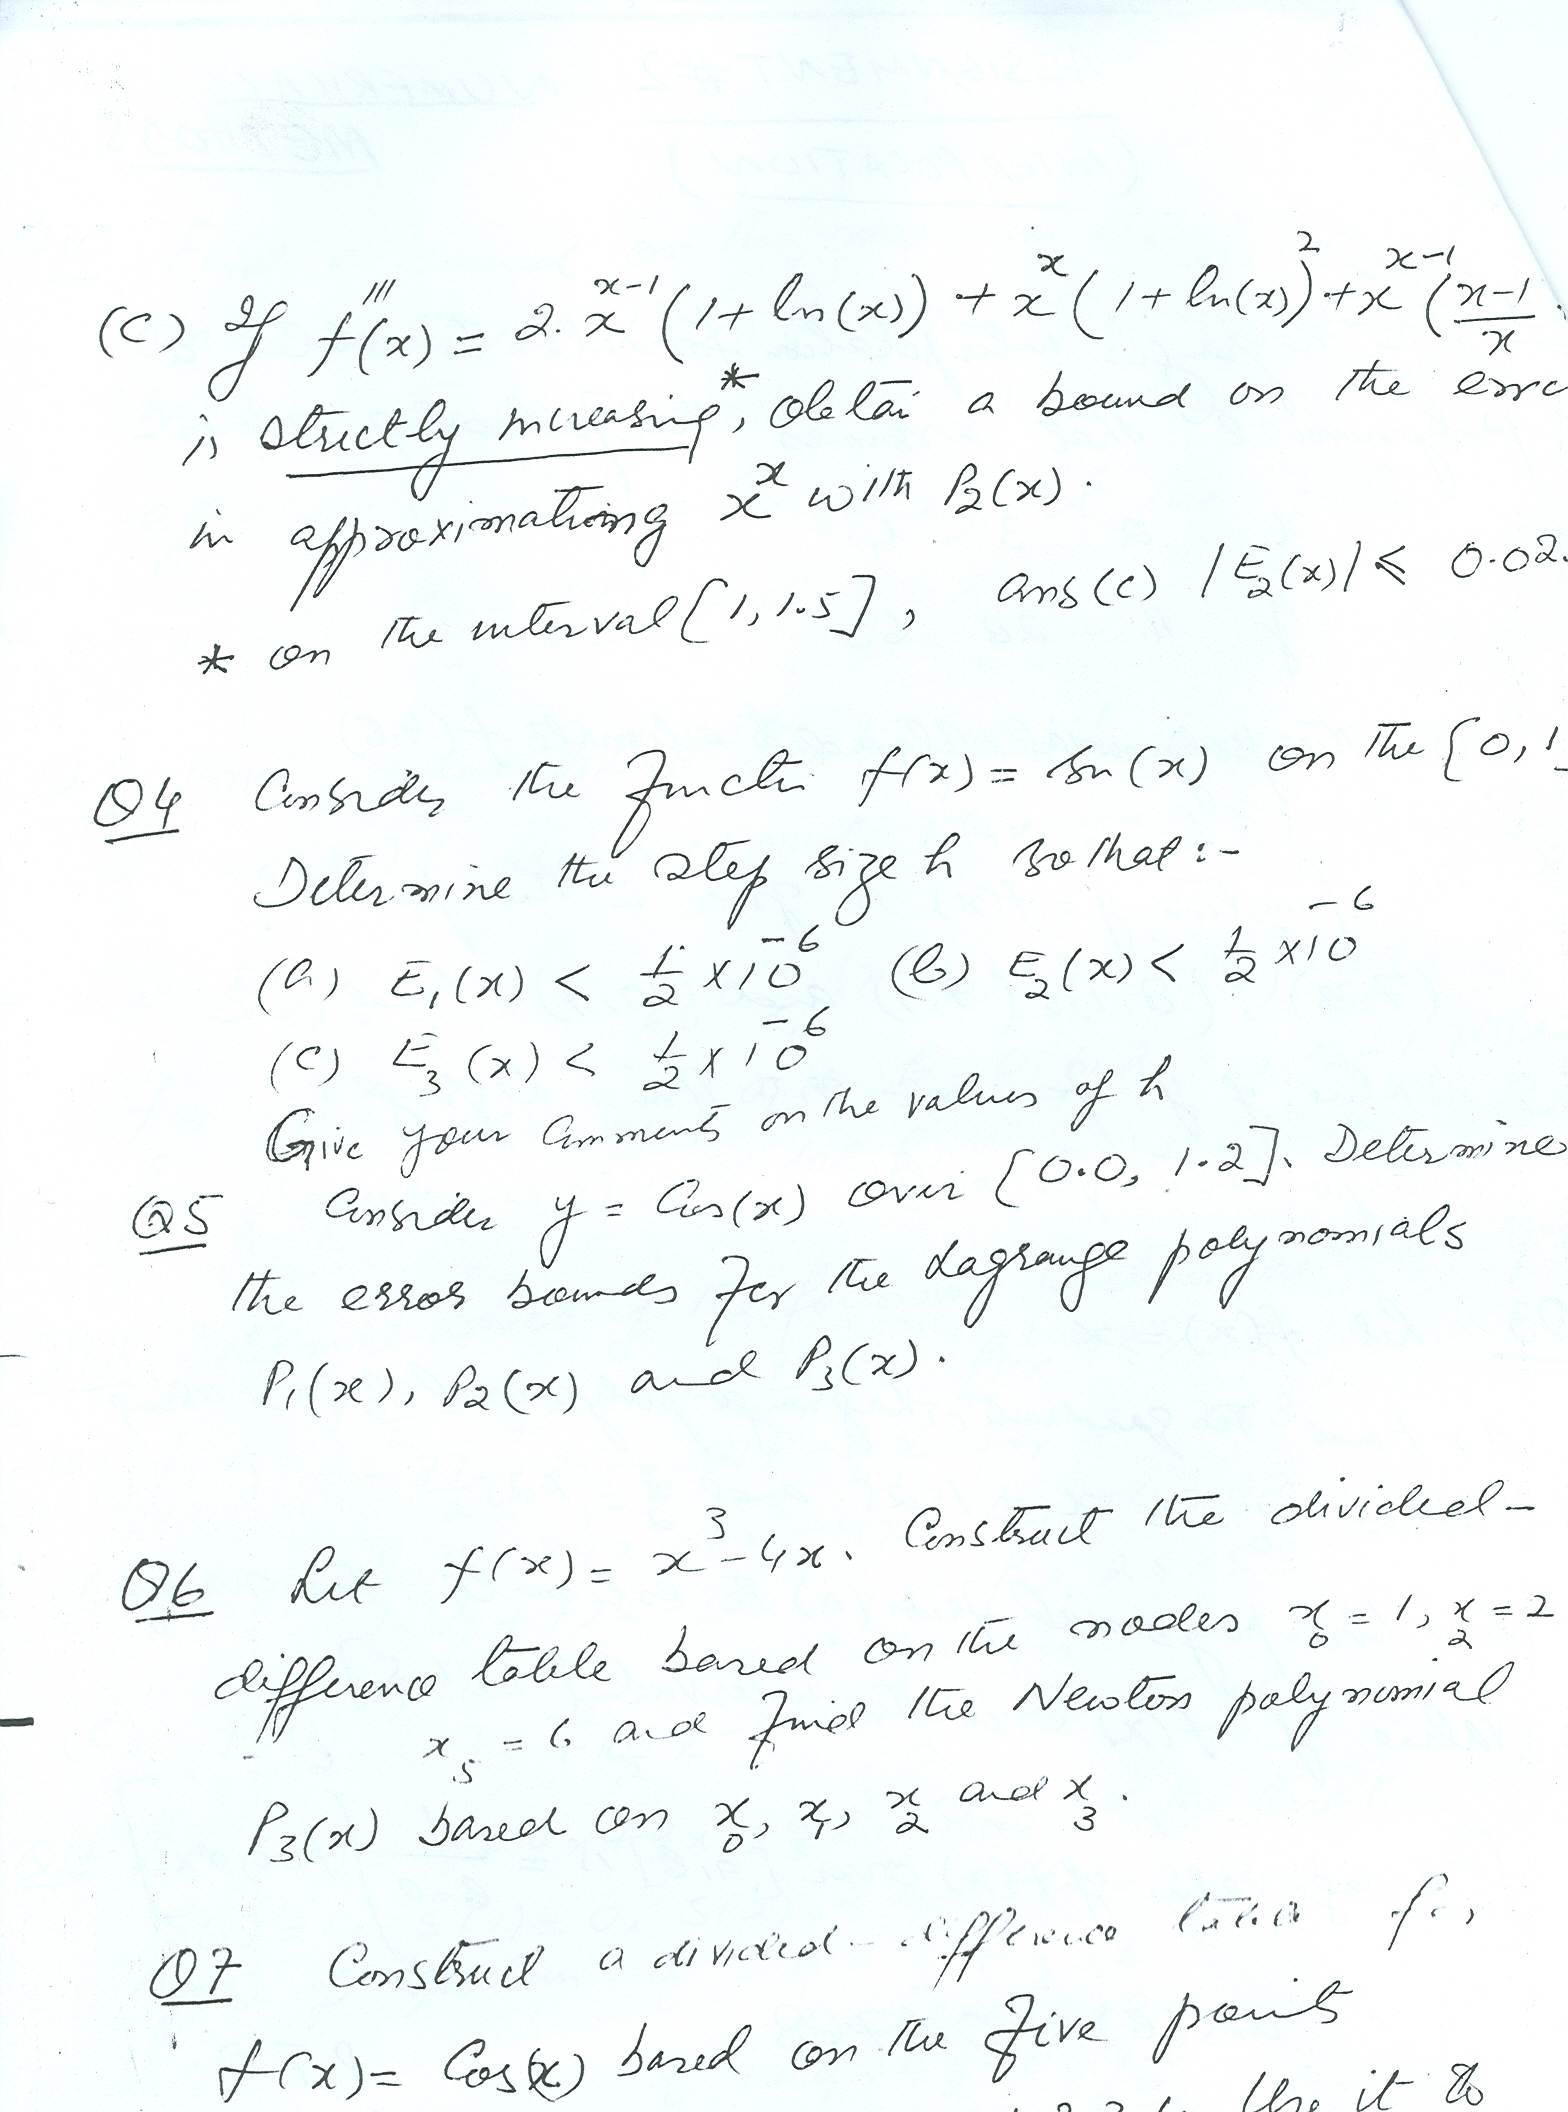 (c) If f'''(x) = 2.x^{x-1}(1+ln(x)) + x^x(1+ln(x))^2 + x^{x-1}(x-1/x
is strictly increasing*, obtain a bound on the erro
in approximationg x^x with P2(x).
* on the interval [1, 1.5], ans (c) |E2(x)| ≤ 0.02
Q4 Consider the function f(x) = Sin(x) on the [0, 1
Determine the step size h so that :-
(a) E1(x) < 1/2 × 10^{-6} (b) E2(x) < 1/2 × 10^{-6}
(c) E3(x) < 1/2 × 10^{-6}
Give your comments on the values of h
Q5 Consider y = Cos(x) over [0.0, 1.2]. Determine
the error bounds for the Lagrange polynomials
P1(x), P2(x) and P3(x).
Q6 Let f(x) = x^3 - 4x. Construct the divided-
difference table based on the nodes x0 = 1, x2 = 2
x5 = 6 and find the Newton polynomial
P3(x) based on x0, x1, x2 and x3.
Q7 Construct a divided-difference table for
f(x) = Cos(x) based on the five points
Use it to